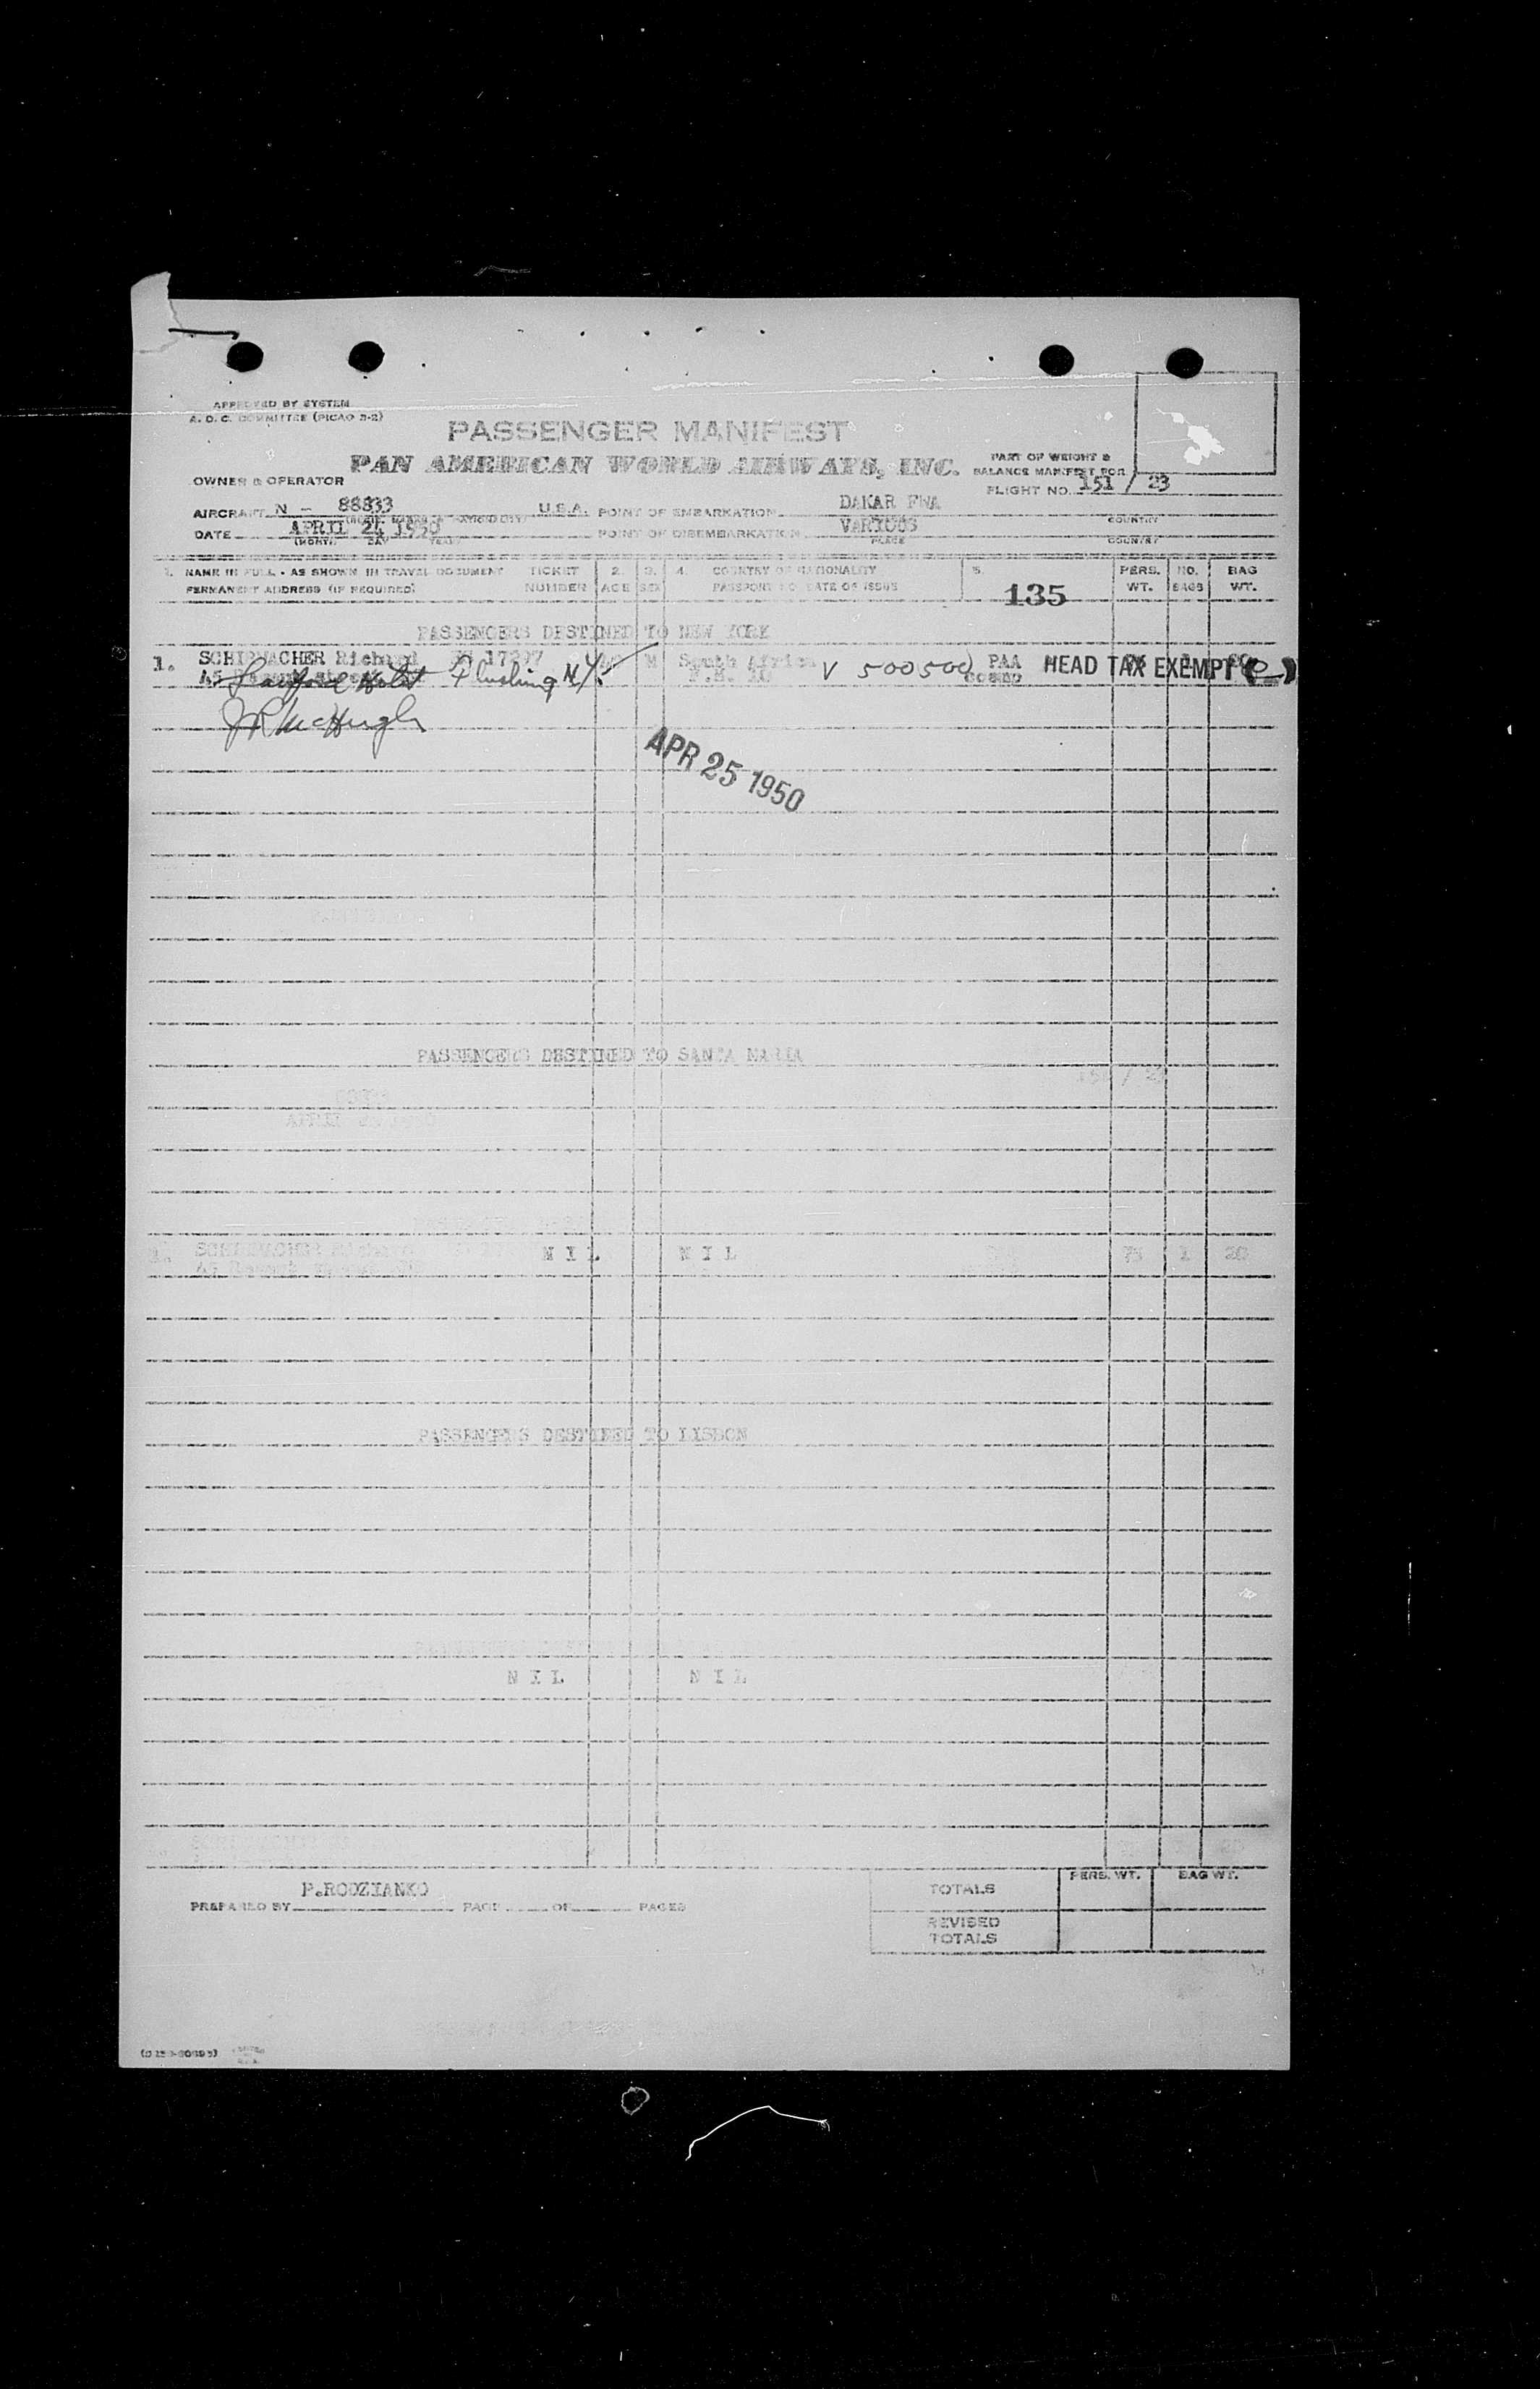 APPROVED BY SYSTEM
A. O. C. COMMITTEE (PICAO 3-2)
PASSENGER MANIFEST
PAN AMERICAN WORLD AIRWAYS, INC.
PART OF WEIGHT &
BALANCE MANIFEST FOR
OWNER & OPERATOR
FLIGHT NO. 151 / 23
AIRCRAFT N - 88833 U.S.A. POINT OF EMBARKATION DAKAR FWA
COUNTRY
DATE APRIL 24 1950 POINT OF DISEMBARKATION VARIOUS
(MONTH) DAY YEAR PLACE COUNTRY
1. NAME IN FULL - AS SHOWN IN TRAVEL DOCUMENT TICKET 2. 3. 4. COUNTRY OF NATIONALITY 5. PERS. NO. BAG
PERMANENT ADDRESS (IF REQUIRED) NUMBER AGE SEX PASSPORT NO DATE OF ISSUE 135 WT. BAGS WT.
PASSENGERS DESTINED TO NEW YORK
1. SCHIRMACHER Richard 17297 M South Africa V 500500 PAA HEAD TAX EXEMPT
Hotel Flushing N.Y.
J R McHugh
APR 25 1950
PASSENGERS DESTINED TO SANTA MARIA
151 / 23
APRIL
1. SCHIRMACHER N I L N I L 75 1 20
PASSENGERS DESTINED TO LISBON
N I L N I L
P.RODZIANKO
PREPARED BY PAGE OF PAGES
TOTALS PERS. WT. BAG WT.
REVISED
TOTALS